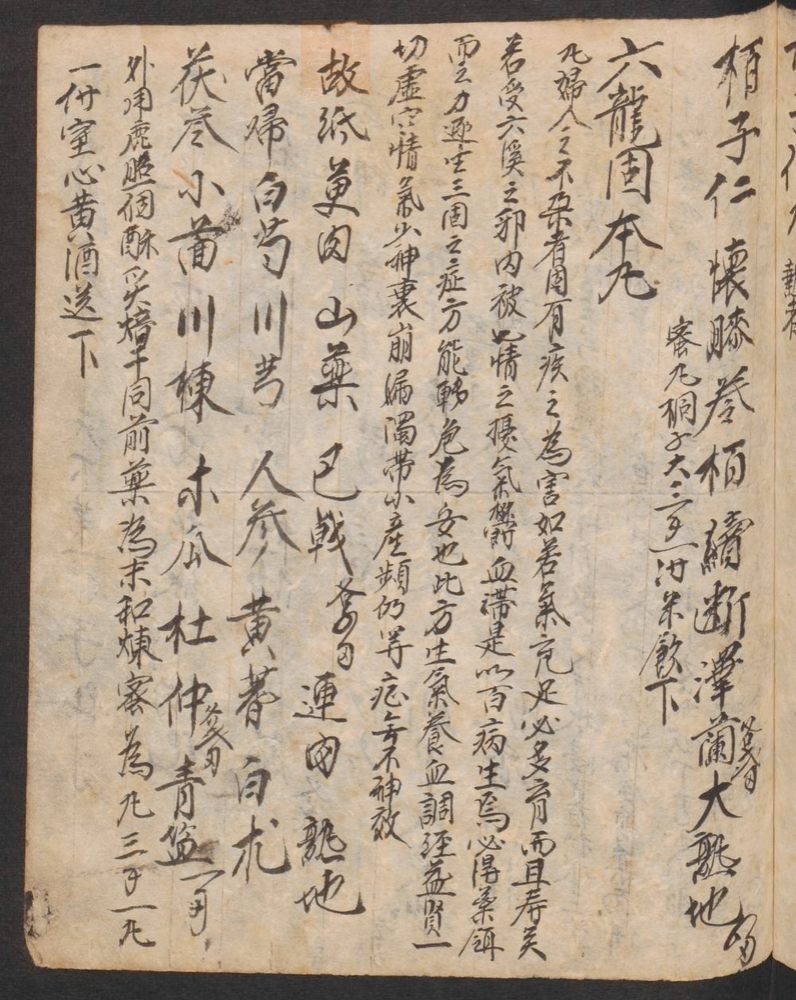 柏子仁 懷膝 卷柏 續斷 澤蘭 大熟地
蜜丸桐子大三十 米飲下
六龍固本丸
凡婦人之不朶者因有疾之為害如若氣充足必多育而且寿矣
若受六溪之邪内被七情之擾氣欝血滞是以百病生焉必得藥餌
而之力逐生三固之症方能轉危為安也此方生氣養血調經益賢一
切虛空情氣少神衰崩漏濁帯小産頻仍等症無不神效
故紙 萸肉 山藥 巴戟 連肉 熟地
當歸 白芍 川芎 人參 黄蓍 白朮
茯苓 小茴 川楝 木瓜 杜仲 青盐
外用鹿 一個酥炙焙干同前藥為末和煉蜜為丸三 一丸
一付室心黄酒送下